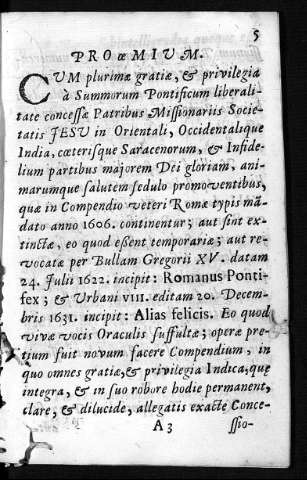 5
PROœMIUM.
CUM plurimæ gratiæ, & privilegia
à Summorum Pontificum liberali-
tate concessæ Patribus Missionariis Socie-
tatis JESU in Orientali, Occidentalique
India, cœterisque Saracenorum, & Infide-
lium partibus majorem Dei gloriam, ani-
marumque salutem sedulo promoventibus,
quæ in Compendio veteri Romæ typis mã-
dato anno 1606. continentur; aut sint ex-
tinctæ, eo quod essent temporariæ; aut re-
vocatæ per Bullam Gregorii XV. datam
24. Julii 1622. incipit: Romanus Ponti-
fex; & Urbani VIII. editam 20. Decem-
bris 1631. incipit: Alias felicis. Eo quod
vivæ vocis Oraculis suffultæ; operæ pre-
tium fuit novum facere Compendium, in
quo omnes gratiæ, & privilegia Indica, quę
integra, & in suo robore hodie permanent,
clare, & dilucide, allegatis exacte Conce-
A 3
ssio-